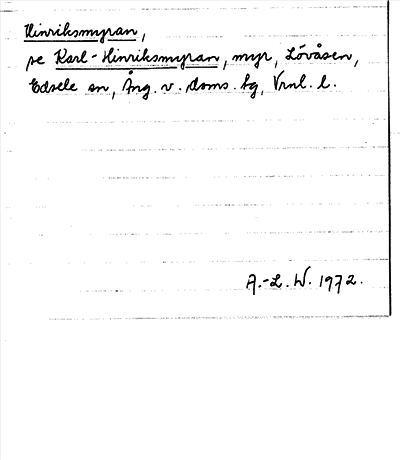 Hinriksmyran,
se Karl-Hinriksmyran, myr, Lövåsen,
Edsele sn, Ång. v. doms. tg, Vrnl. l.
A.-L. W. 1972.